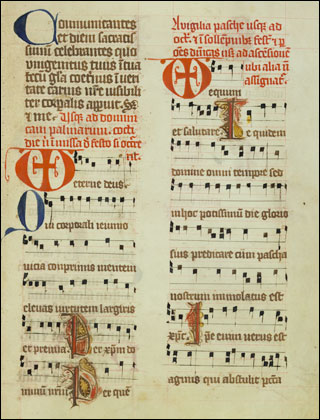 Communicantes
et diem sacratis
simum celebrantes quo
unigenitus tuus i tua
tecu gla coetnus i veri
tate carnis nre visibilit
corpalis appuit.
et me. Usq ad domin
cam palmarum. coti
die in missa d festo si occrr
int.
eterne deus.
Qui corporali ieiunio
vicia comprimis mentem
elevas virtutem largiris
et premia. Per xpm do
minum nrm Per que
A vigilia pasche usq ad
oct i sollempnib fest z p
oes dnicas usq ad ascesione
ubi alia no
assignat.
equum
et salutare. Te quidem
domine omni tempre sed
in hoc potissimum die glorio
sius predicare cum pascha
nostrum immolatus est
xpc. Ipse enim verus est
agnus qui abstulit pcta